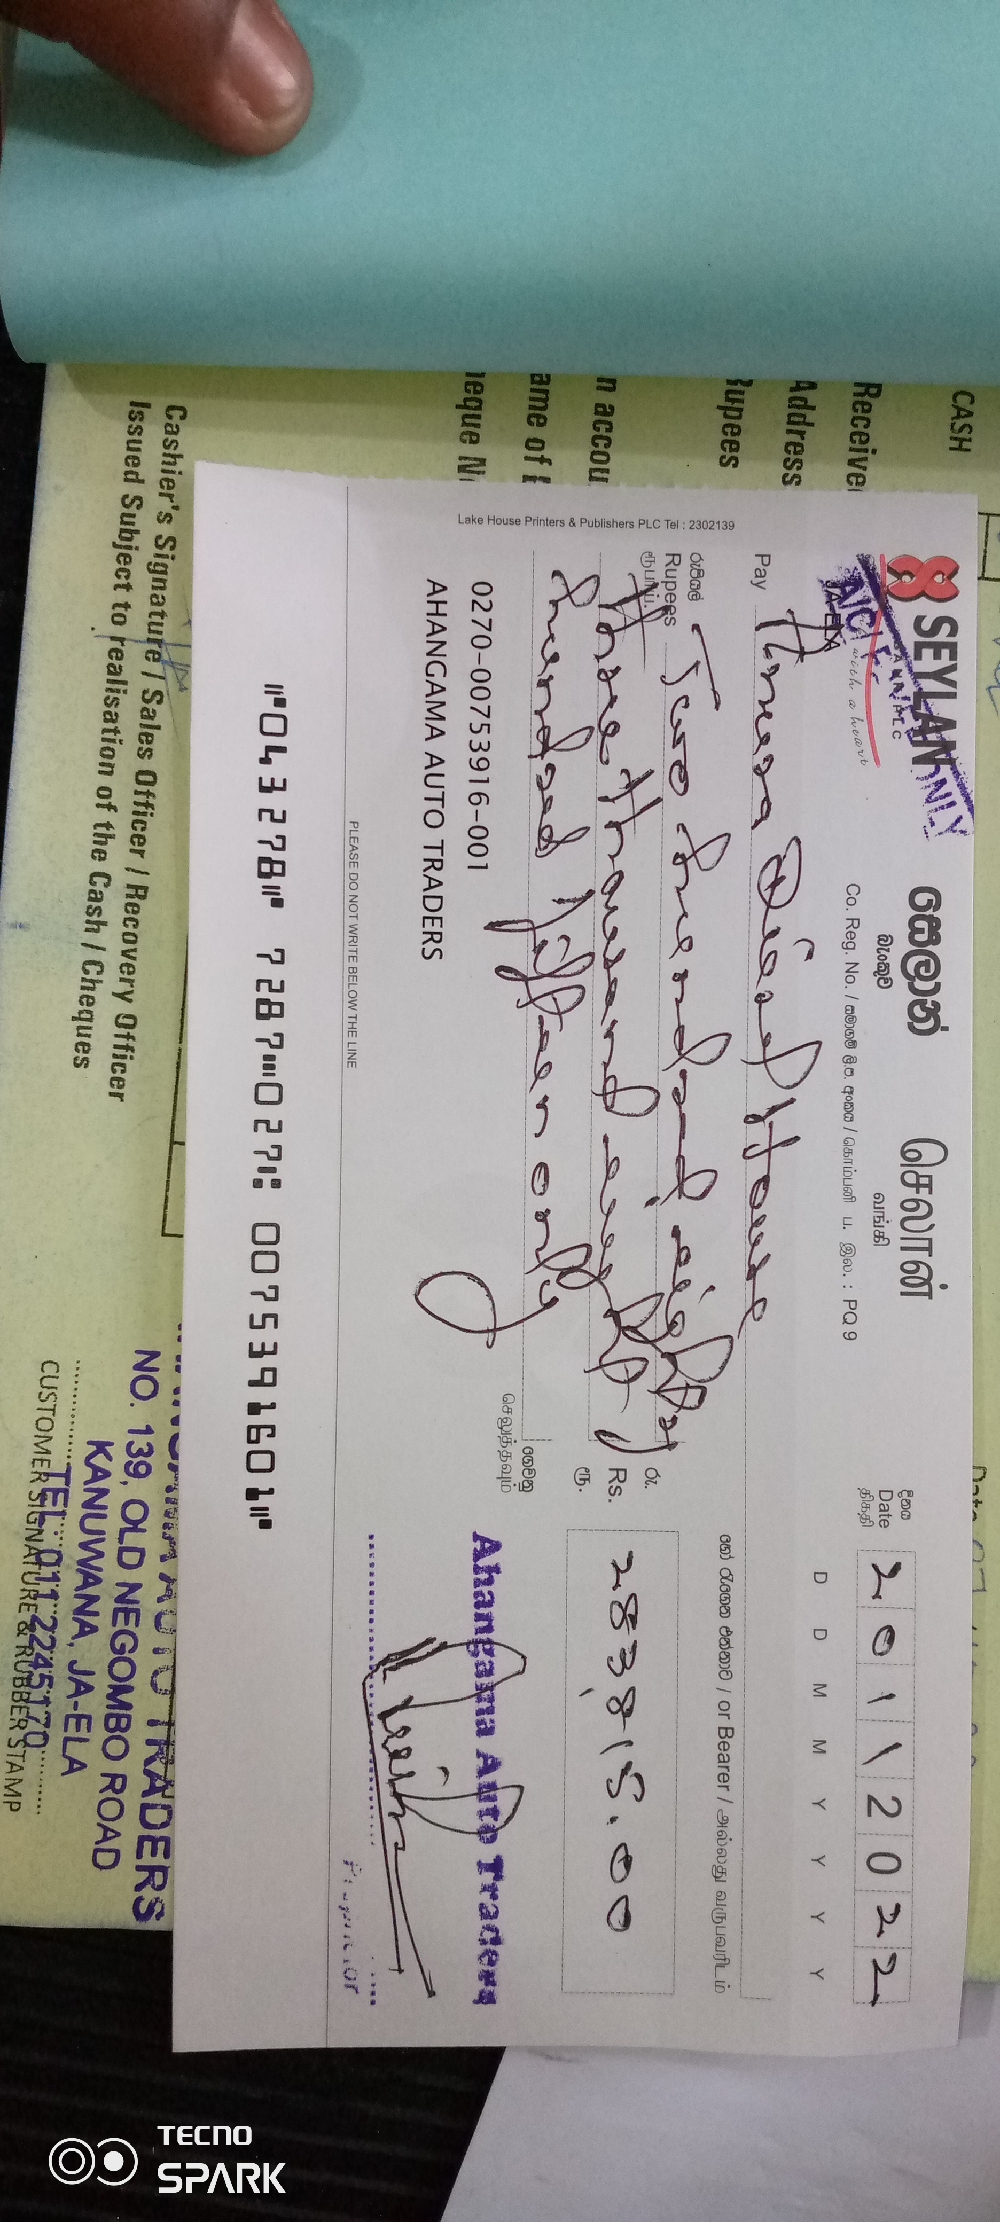 CASH
Receive
Address
Rupees
n accou
ame of
heque N
Cashier's Signature / Sales Officer / Recovery Officer
Issued Subject to realisation of the Cash / Cheques
Lake House Printers & Publishers PLC Tel : 2302139
SEYLAN
සෙලාන්
බැංකුව
செலான்
வங்கி
with a heart
JA-ELA
ONLY
Co. Reg. No. / සමාගම් ලි.ප. අංකය / கொம்பனி ப. இல. : PQ 9
දිනය
Date
திகதி
20112022
D D M M Y Y Y Y
Pay Diesel House
හෝ රැගෙන එන්නාට / or Bearer / அல்லது வருபவரிடம்
රුපියල්
Rupees
ரூபாய்
Two hundred eighty
three thousand eight
hundred fifteen only
රු.
Rs.
ரூ.
283,815.00
ගෙවනු
செலுத்தவும்
0270-00753916-001
AHANGAMA AUTO TRADERS
Ahangama Auto Traders
Proprietor
PLEASE DO NOT WRITE BELOW THE LINE
⑈043278⑈ 7287⑉027⑆ 0075391601⑈
AHANGAMA AUTO TRADERS
NO. 139, OLD NEGOMBO ROAD
KANUWANA, JA-ELA
TEL: 011 2245170
CUSTOMER SIGNATURE & RUBBER STAMP
TECNO
SPARK